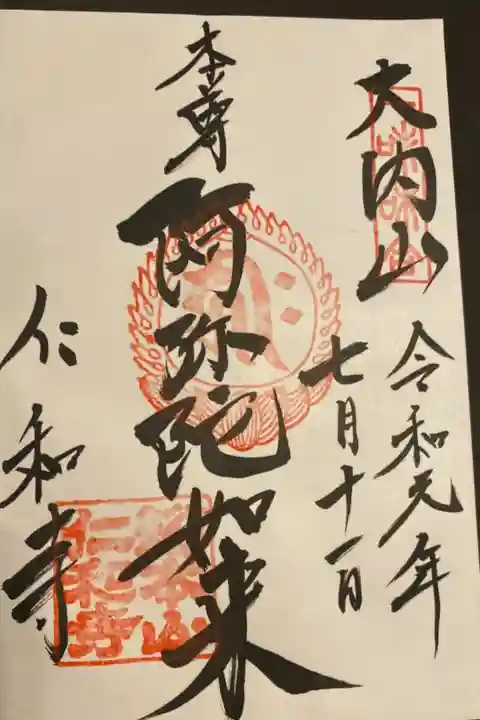 大内山
令和元年
七月十一日
本尊
阿弥陀如来
仁和寺
総本山
仁和寺